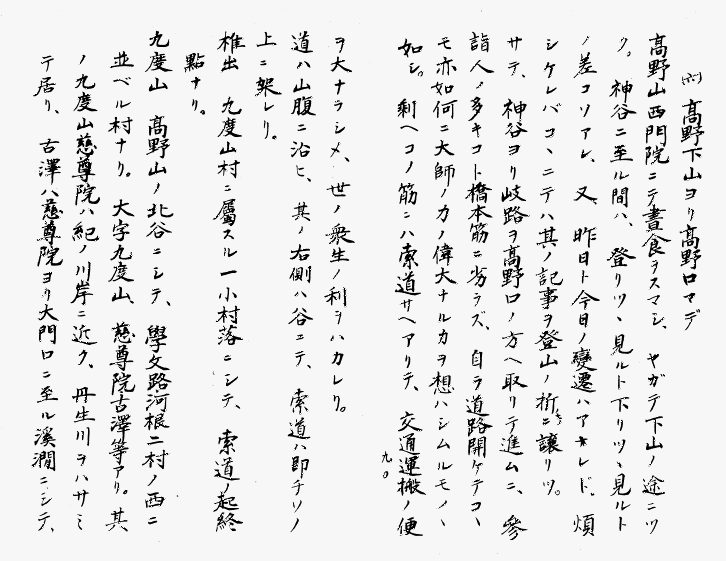 (六) 高野下山ヨリ高野口マデ
高野山西門院ニテ晝食ヲスマシ、ヤガテ下山ノ途ニツ
ク。神谷ニ至ル間ハ、登リツヽ見ルト下リツヽ見ルト
ノ差コソアレ、又、昨日ト今日ノ變遷ハアキレド、煩
シケレバコヽニテハ其ノ記事ヲ登山ノ條ニ讓リツ。
サテ、神谷ヨリ岐路ヲ高野口ノ方ヘ取リテ進ムニ、參
詣人ノ多キコト橋本筋ニ劣ラズ、自ラ道路開ケテコヽ
モ亦如何ニ大師ノカノ偉大ナルカヲ想ハシムルモノヽ
如シ。剩ヘコノ筋ニハ索道サヘアリテ、交通運搬ノ便
九〇
ヲ大ナラシメ、世ノ衆生ノ利ヲハカレリ。
道ハ山腹ニ沿ヒ、其ノ右側ハ谷ニテ、索道ハ即チソノ
上ニ架レリ。
椎出 九度山村ニ屬スル一小村落ニシテ、索道ノ起終
點ナリ。
九度山 高野山ノ北谷ニシテ、學文路河根二村ノ西ニ
並ベル村ナリ。大字九度山、慈尊院古澤等アリ。其
ノ九度山慈尊院ハ紀ノ川岸ニ近ク、丹生川ヲハサミ
テ居リ、古澤ハ慈尊院ヨリ大門口ニ至ル溪澗ニシテ、